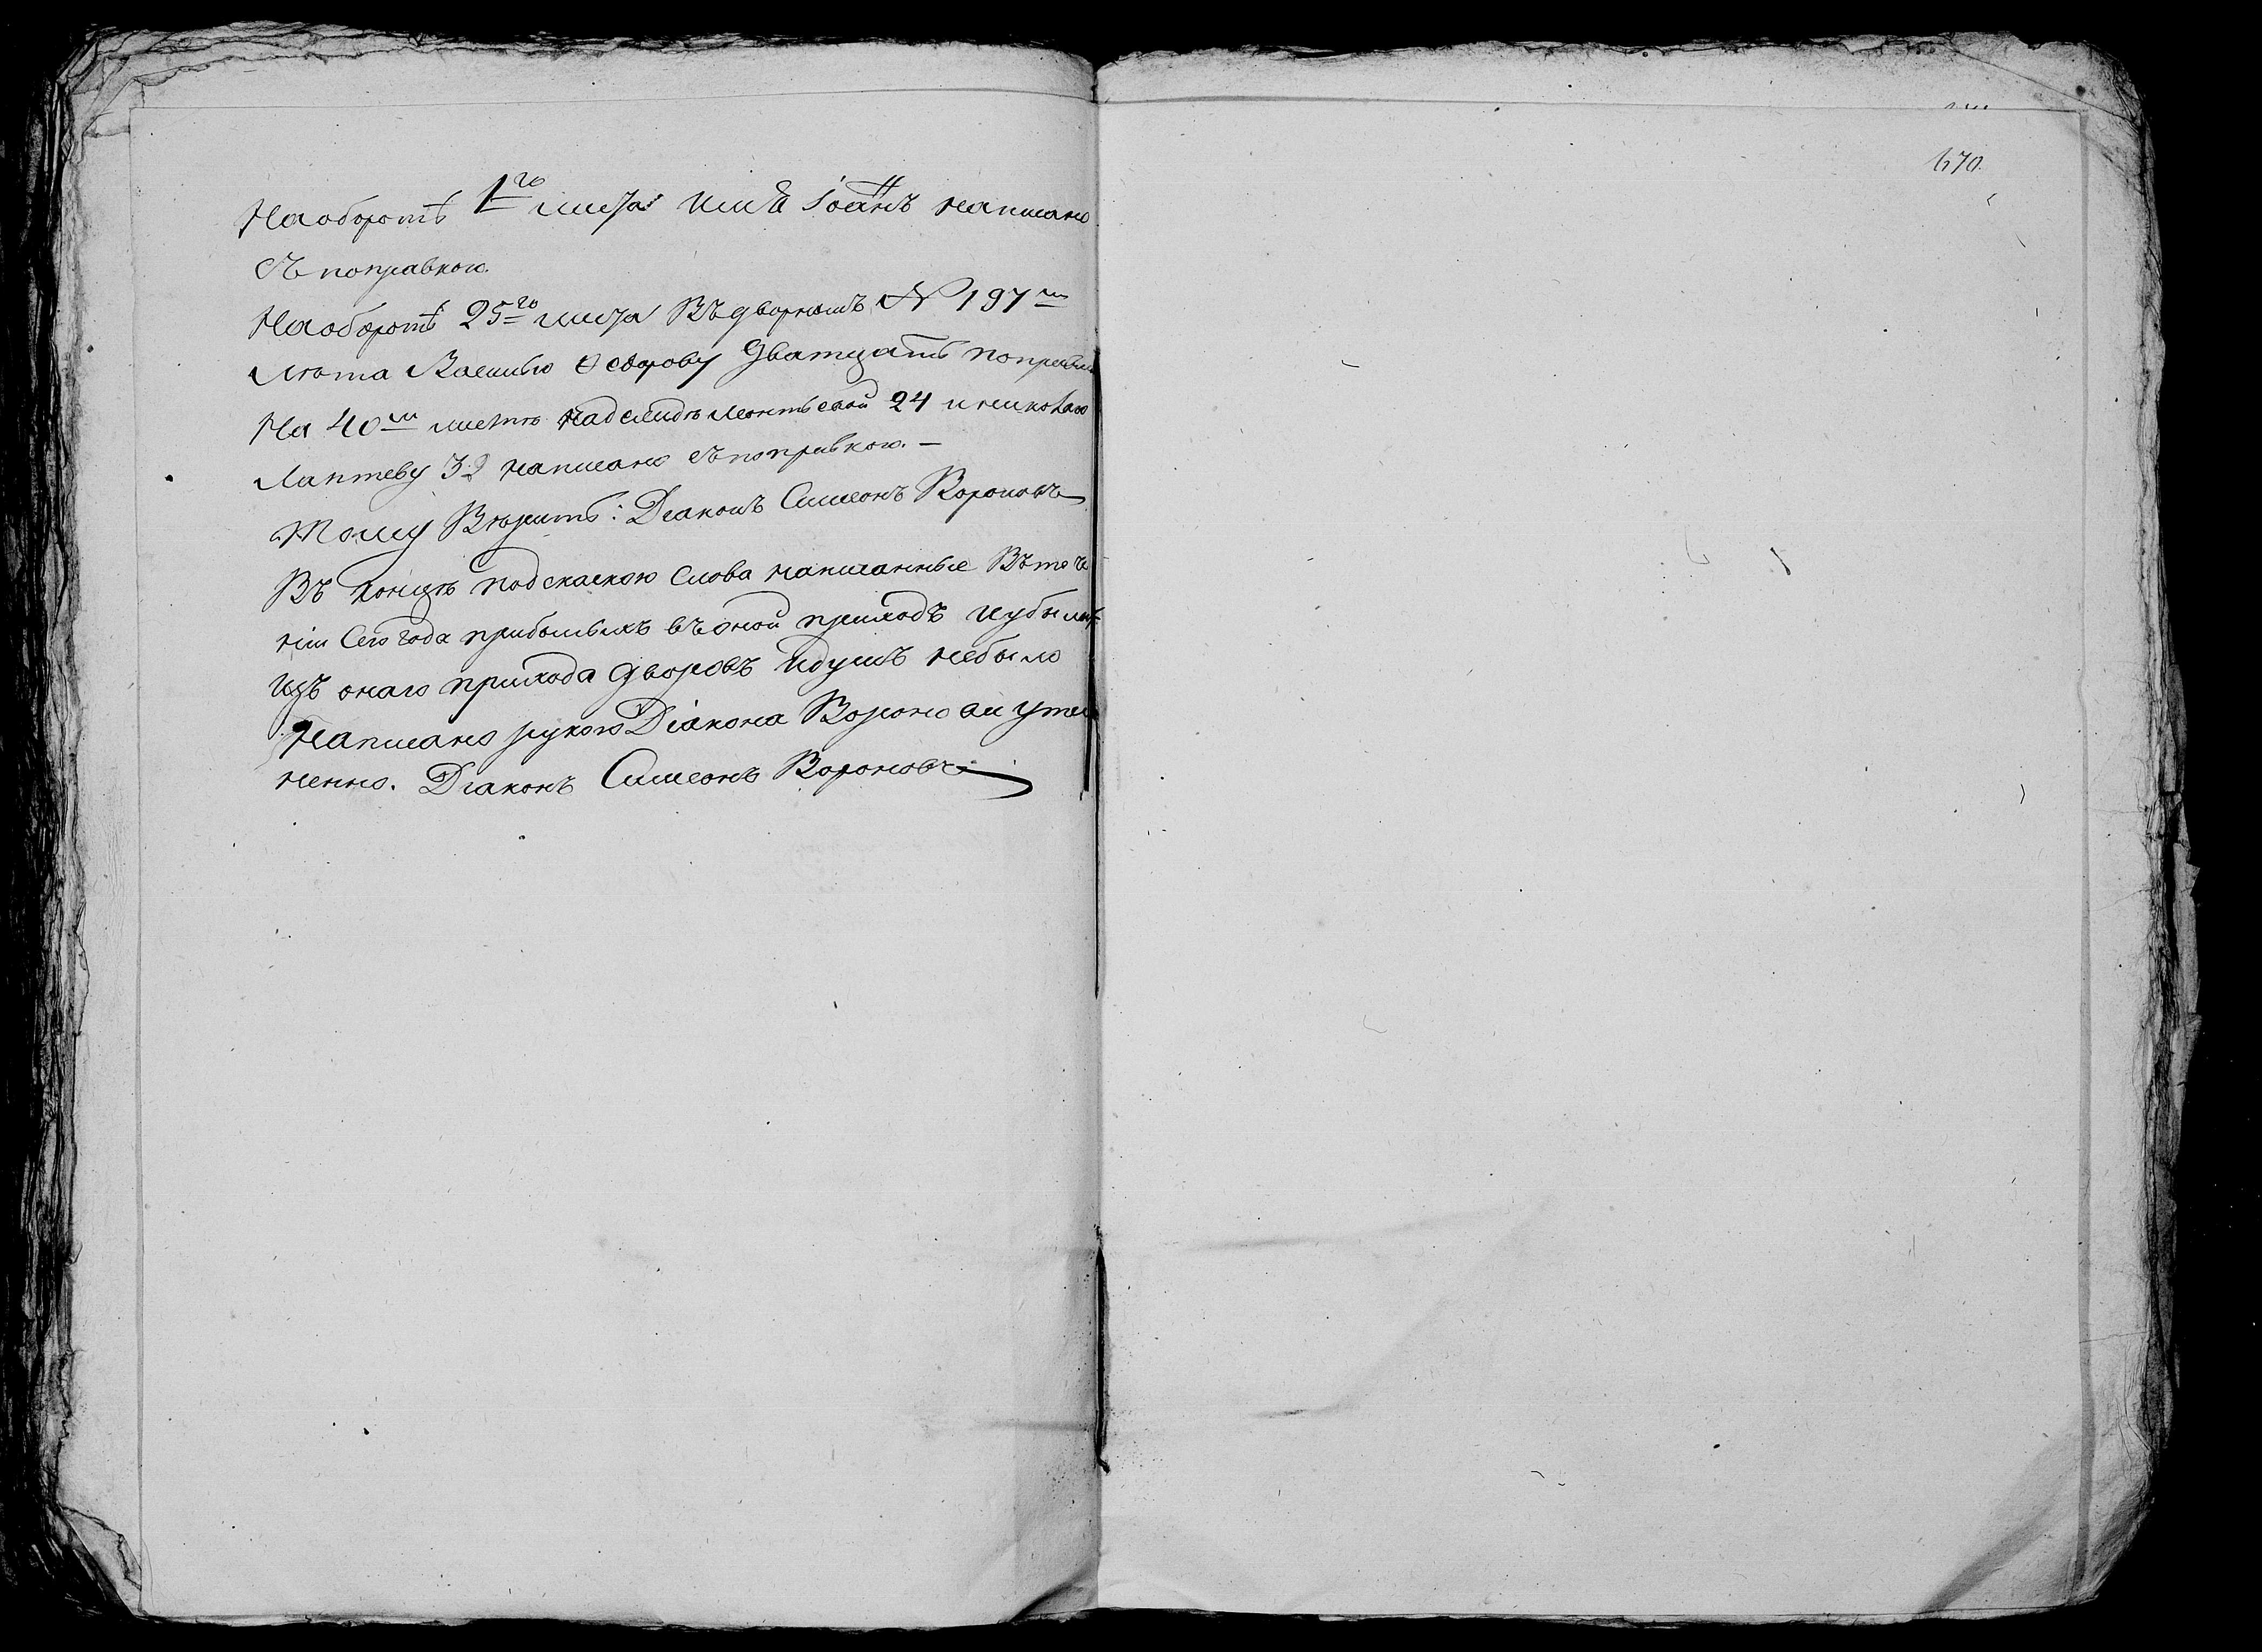 670.
На оборотѣ 1го листа имя Іоаннъ написано
съ поправкою.
На оборотѣ 25го листа въ дворномъ № 197м
лѣта Василью Ѳедорову дватцать поправле
На 40м листѣ над Леонтьевой 24 и николаю
Лаптеву 32 написано съ поправкою. —
Тому вѣрить: Діаконъ Симеонъ Вороновъ
Въ концѣ под скаскою слова написанные въ тече
ніи сего года прибылыхъ въ оной приходъ и убылых
изъ онаго прихода дворовъ и душъ небыло
написано рукою Діакона
ненно. Діаконъ Симеонъ Вороновъ